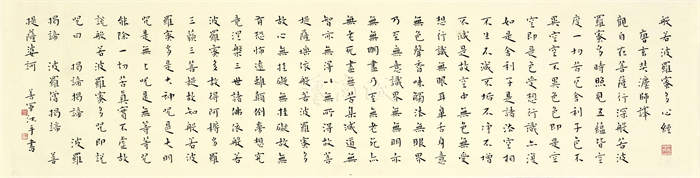 般若波羅蜜多心經
唐玄奘法師譯
觀自在菩薩行深般若波
羅蜜多時照見五蘊皆空
度一切苦厄舍利子色不
異空空不異色色即是空
空即是色受想行識亦復
如是舍利子是諸法空相
不生不滅不垢不淨不增
不減是故空中無色無受
想行識無眼耳鼻舌身意
無色聲香味觸法無眼界
乃至無意識界無無明亦
無無明盡乃至無老死亦
無老死盡無苦集滅道無
智亦無得以無所得故菩
提薩埵依般若波羅蜜多
故心無挂礙無挂礙故無
有恐怖遠離顛倒夢想究
竟涅槃三世諸佛依般若
波羅蜜多故得阿耨多羅
三藐三菩提故知般若波
羅蜜多是大神咒是大明
咒是無上咒是無等等咒
能除一切苦真實不虛故
說般若波羅蜜多咒即說
咒曰 揭諦揭諦 波羅
揭諦 波羅僧揭諦 菩
提薩婆訶
書